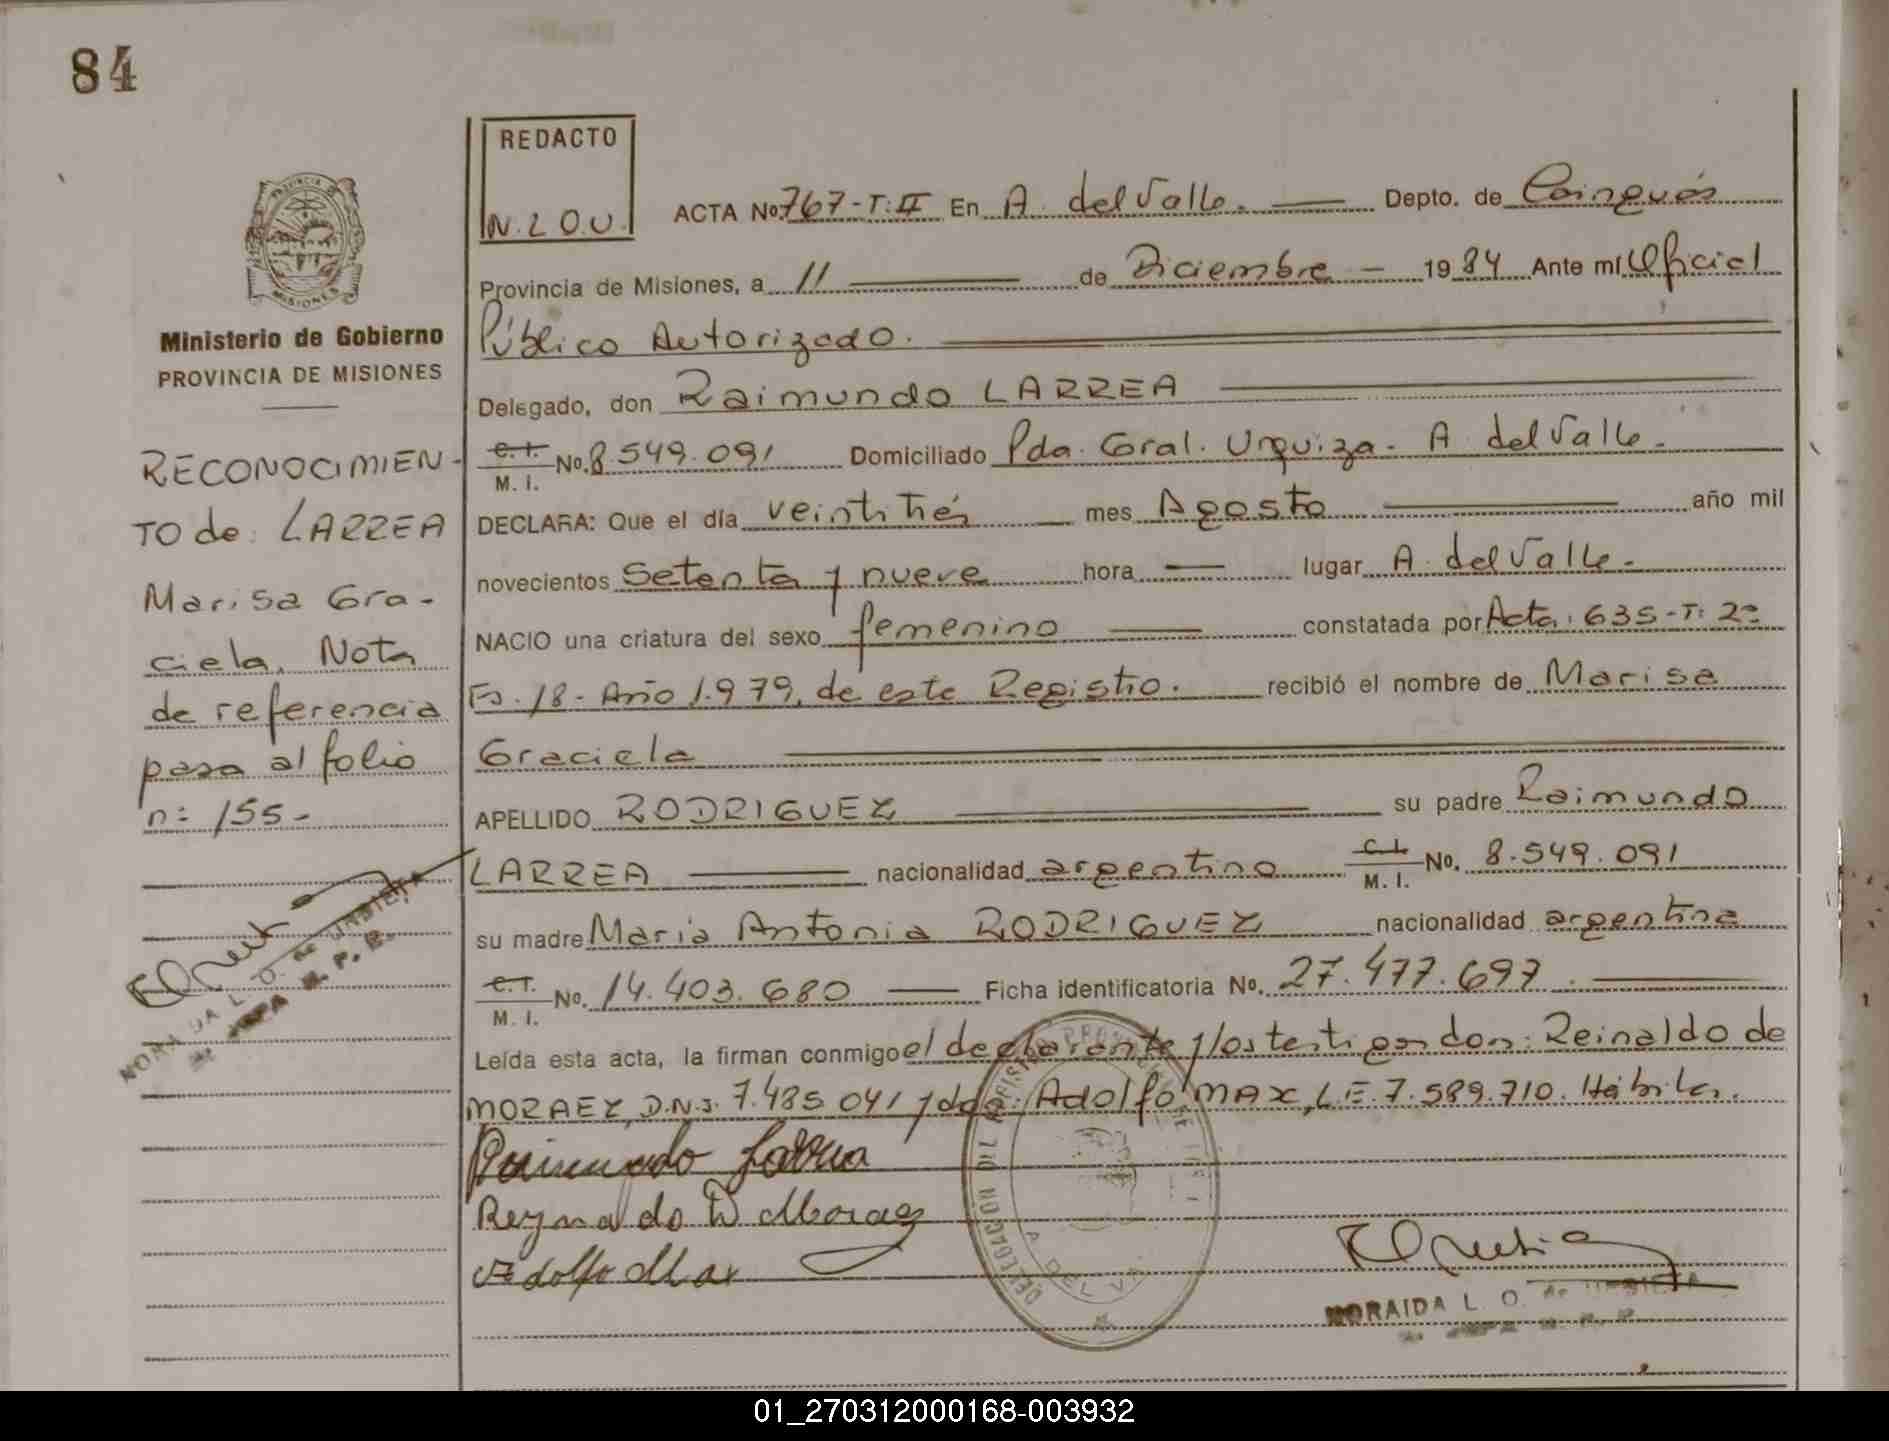 84
REDACTO
N. L O. U.
ACTA No. 767-T: II En A. del Valle. Depto. de Cainguás
Provincia de Misiones, a 11 de Diciembre - 1984 Ante mí Oficial
Público Autorizado.
Delegado, don Raimundo LARREA
C. I. M. I. No. 8.549.091 Domiciliado Pda. Gral. Urquiza - A. del Valle -
DECLARA: Que el día veintitrés mes Agosto año mil
novecientos setenta y nueve hora — lugar A. del Valle -
NACIO una criatura del sexo femenino constatada por Acta: 635-T: 2º
Fs. 18 - Año 1.979, de este Registro. recibió el nombre de Marisa
Graciela
APELLIDO RODRIGUEZ su padre Raimundo
LARREA nacionalidad argentino C. I. M. I. No. 8.549.091
su madre Maria Antonia RODRIGUEZ nacionalidad argentina
C. I. M. I. No. 14.403.680 Ficha identificatoria No. 27.477.697
Leída esta acta, la firman conmigo el declarante y los testigos don: Reinaldo de
MORAEZ, D.N.I. 7.485.041 y don: Adolfo MAX, L.E. 7.589.710. Hábiles.
Raimundo Larrea
Reynaldo D Moraez
Adolfo Max
NORAIDA L. O. de URBIETA
PROVINCIA
MISIONES
Ministerio de Gobierno
PROVINCIA DE MISIONES
RECONOCIMIEN-
TO de: LARREA
Marisa Gra-
ciela. Nota
de referencia
pasa al folio
nº 155-
NORAIDA L. O. de URBIETA
01_270312000168-003932